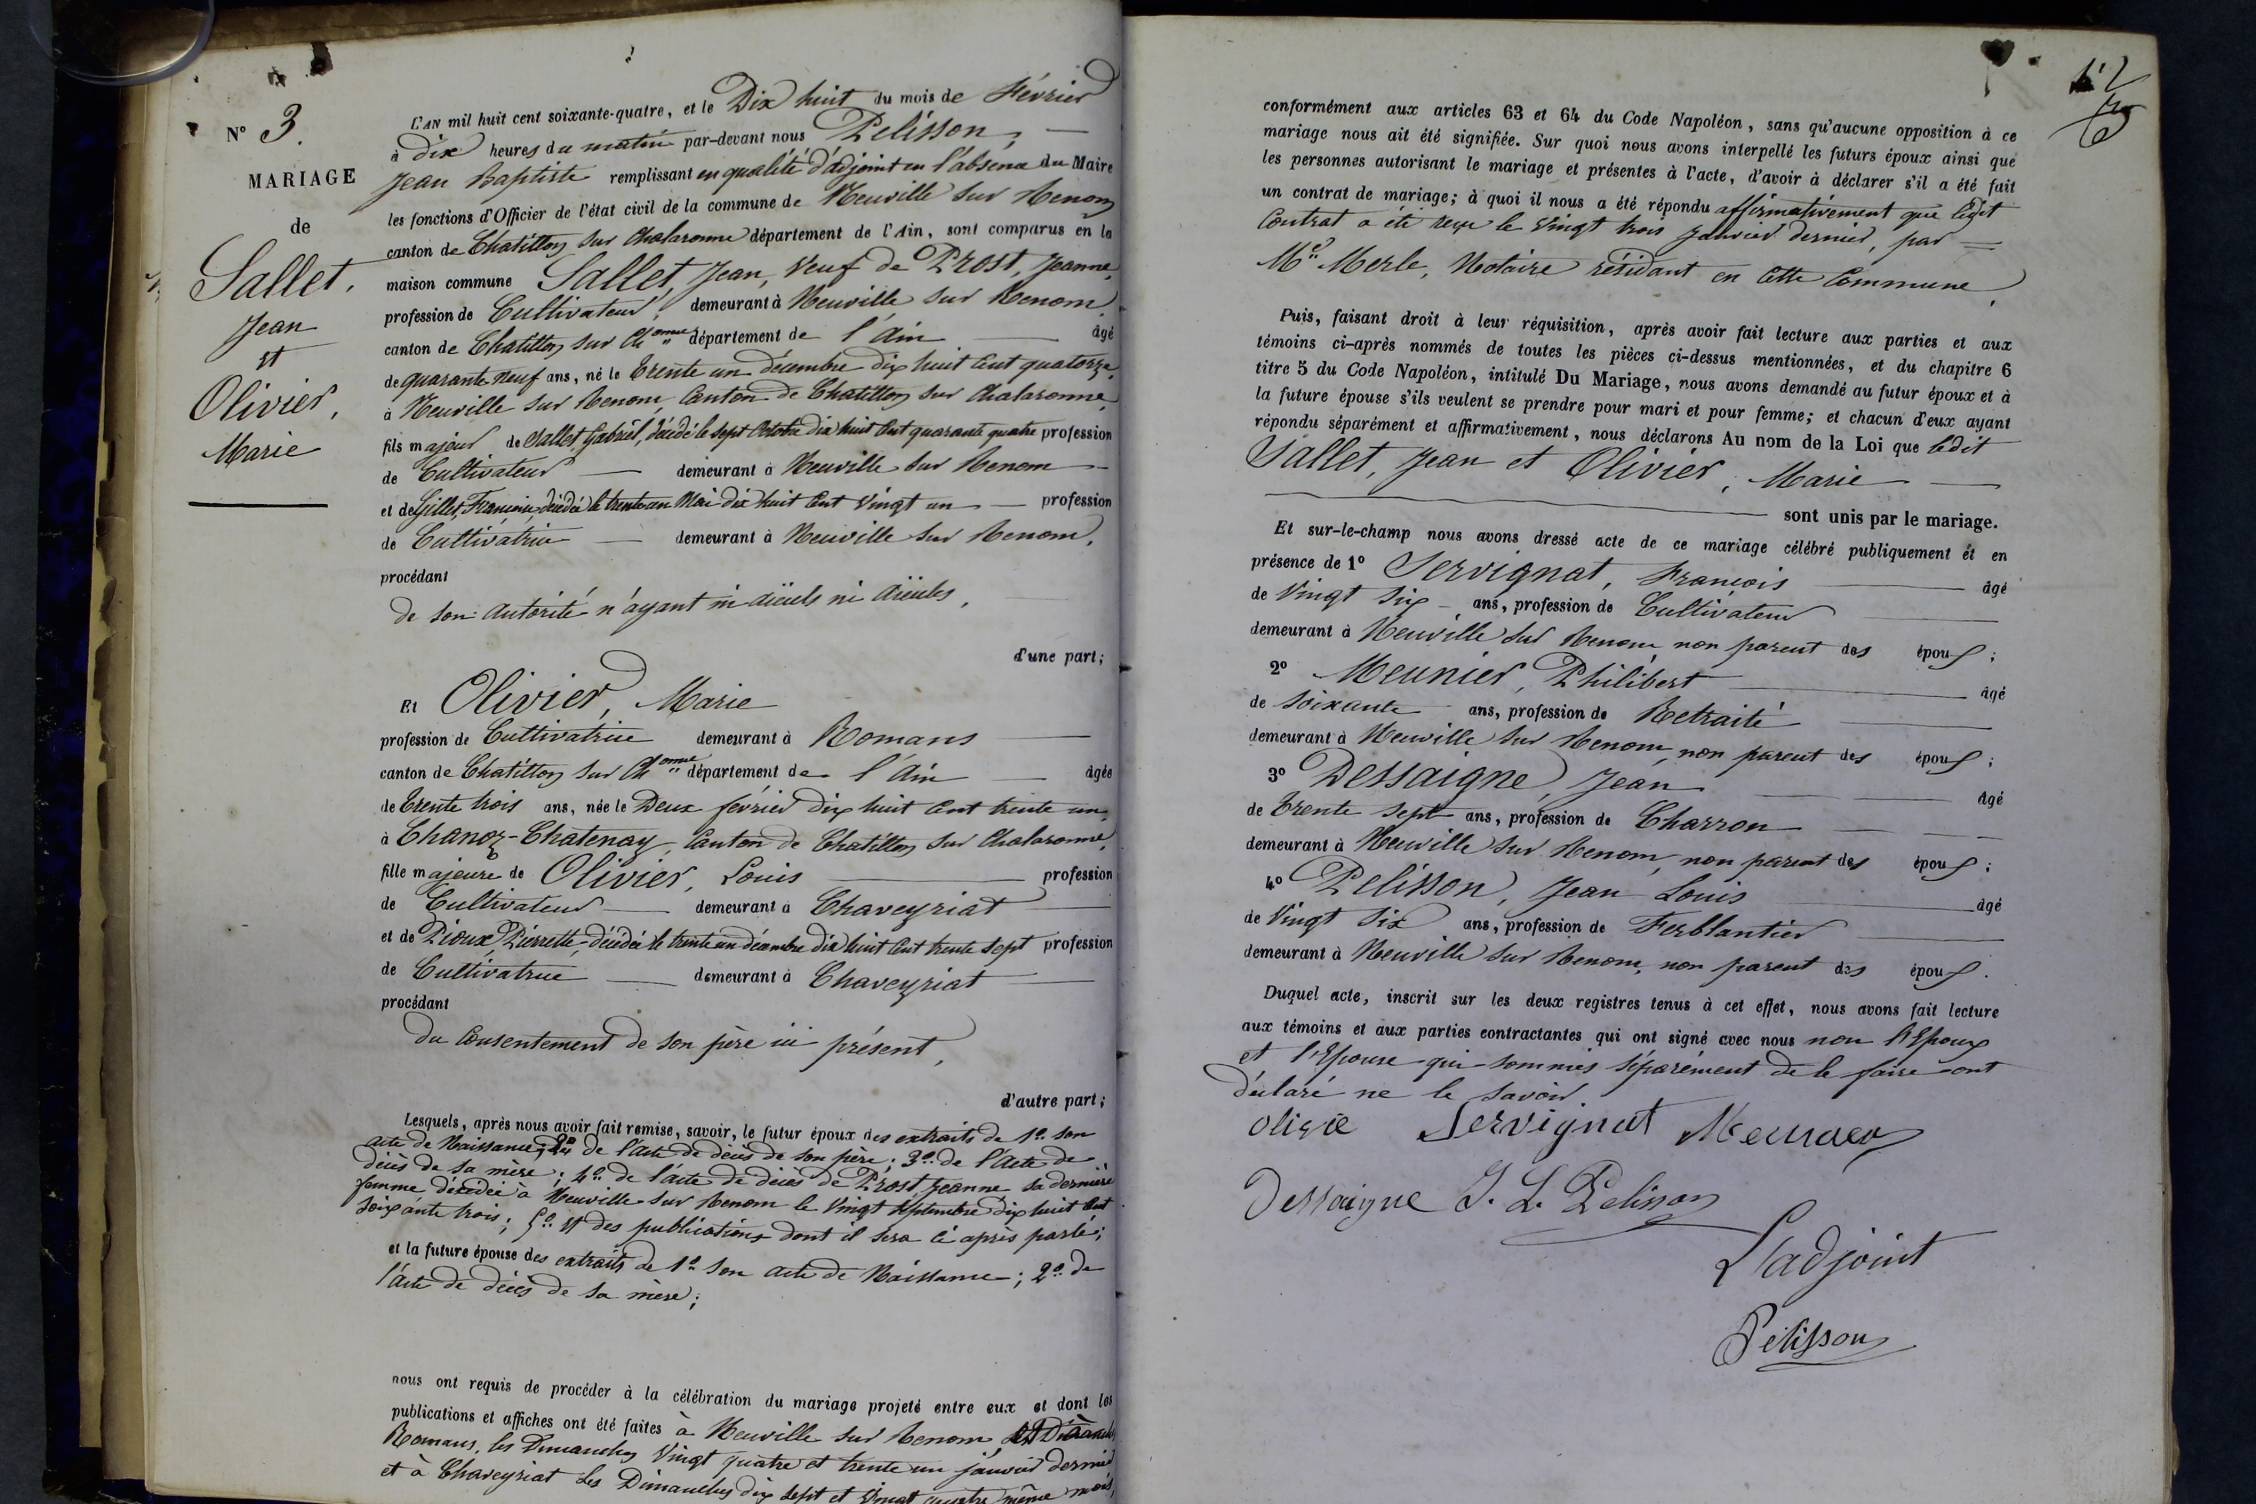 N° 3.
MARIAGE
de
Sallet,
Jean
et
Olivier,
Marie
L'AN mil huit cent soixante-quatre, et le Dix huit du mois de Février
à dix heures du matin par-devant nous Pelisson,
Jean Baptiste remplissant en qualité d'adjoint en l'absence du Maire
les fonctions d'Officier de l'état civil de la commune de Neuville sur Renom
canton de Chatillon sur Chalaronne département de l'Ain, sont comparus en la
maison commune Sallet, Jean, Veuf de Prost, Jeanne,
profession de Cultivateur, demeurant à Neuville sur Renom,
canton de Chatillon sur Ch onne département de l'Ain âgé
de quarante neuf ans, né le trente un décembre dix huit cent quatorze,
à Neuville sur Renom, Canton de Chatillon sur Chalaronne,
fils majeur de Sallet, Gabriel, décédé le sept Octobre dix huit cent quarante quatre profession
de Cultivateur demeurant à Neuville sur Renom
et de Gillet, Françoise, décédée le trente un Mai dix huit cent vingt un profession
de Cultivatrice demeurant à Neuville sur Renom,
procédant
de son autorité n'ayant ni aïeuls ni aïeules,
d'une part;
Et Olivier, Marie
profession de Cultivatrice demeurant à Romans
canton de Chatillon sur Ch onne département de l'Ain âgée
de trente trois ans, née le Deux février dix huit cent trente un,
à Chanoz-Chatenay, Canton de Chatillon sur Chalaronne,
fille majeure de Olivier, Louis profession
de Cultivateur demeurant à Chaveyriat
et de Pioux, Pierrette, décédée le trente un décembre dix huit cent trente sept profession
de Cultivatrice demeurant à Chaveyriat
procédant
du consentement de son père ici présent,
d'autre part;
Lesquels, après nous avoir fait remise, savoir, le futur époux des extraits de 1° son
acte de Naissance; 2° de l'acte de décès de son père; 3° de l'acte de
décès de sa mère; 4° de l'acte de décès de Prost, Jeanne sa dernière
femme décédée à Neuville sur Renom le vingt septembre dix huit cent
soixante trois; 5° et des publications dont il sera ci après parlé;
et la future épouse des extraits de 1° son acte de Naissance; 2° de
l'acte de décès de sa mère;
nous ont requis de procéder à la célébration du mariage projeté entre eux et dont les
publications et affiches ont été faites à Neuville sur Renom
Romans, les Dimanches vingt quatre et trente un janvier dernier
et à Chaveyriat les Dimanches dix sept et vingt quatre même mois,
conformément aux articles 63 et 64 du Code Napoléon, sans qu'aucune opposition à ce
mariage nous ait été signifiée. Sur quoi nous avons interpellé les futurs époux ainsi que
les personnes autorisant le mariage et présentes à l'acte, d'avoir à déclarer s'il a été fait
un contrat de mariage; à quoi il nous a été répondu affirmativement que ledit
Contrat a été reçu le vingt trois janvier dernier, par
Me Merle, Notaire résidant en cette Commune,
Puis, faisant droit à leur réquisition, après avoir fait lecture aux parties et aux
témoins ci-après nommés de toutes les pièces ci-dessus mentionnées, et du chapitre 6
titre 5 du Code Napoléon, intitulé Du Mariage, nous avons demandé au futur époux et à
la future épouse s'ils veulent se prendre pour mari et pour femme; et chacun d'eux ayant
répondu séparément et affirmativement, nous déclarons Au nom de la Loi que ledit
Sallet, Jean et Olivier, Marie
sont unis par le mariage.
Et sur-le-champ nous avons dressé acte de ce mariage célébré publiquement et en
présence de 1° Servignat, François âgé
de Vingt six ans, profession de Cultivateur
demeurant à Neuville sur Renom, non parent des époux;
2° Meunier, Philibert âgé
de soixante ans, profession de Retraité
demeurant à Neuville sur Renom, non parent des époux;
3° Dessaigne, Jean âgé
de trente sept ans, profession de Charron
demeurant à Neuville sur Renom, non parent des époux;
4° Pelisson, Jean Louis âgé
de Vingt six ans, profession de Ferblantier
demeurant à Neuville sur Renom, non parent des époux.
Duquel acte, inscrit sur les deux registres tenus à cet effet, nous avons fait lecture
aux témoins et aux parties contractantes qui ont signé avec nous non l'Epoux
et l'Epouse qui sommés séparément de le faire ont
déclaré ne le savoir
olivie Servignat Meunier
Dessaigne J. L. Pelisson
L'adjoint
Pelisson